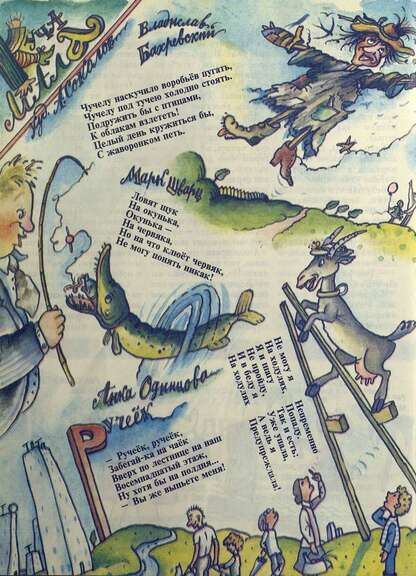 МАЛЫШКА
худ. А. Соколов
Владислав
Бахревский
Чучелу наскучило воробьёв пугать,
Чучелу под тучею холодно стоять.
Подружить бы с птицами,
К облакам взлететь!
Целый день кружиться бы,
С жаворонком петь.
Марк Шварц
Ловят щук
На окунька,
Окунька –
На червяка,
Но на что клюёт червяк,
Не могу понять никак!
Не могу я
На ходулях,
Я и шагу
Не пройду,
И в беду
На ходулях
Непременно
Попаду.
Так и есть,
Уже упала,
А ведь я
Предупреждала!
Анна Одинцова
РУЧЕЁК
– Ручеёк, ручеёк,
Забегай-ка на чаёк
Вверх по лестнице на наш
Восемнадцатый этаж,
Ну хотя бы на полдня...
– Вы же выпьете меня!